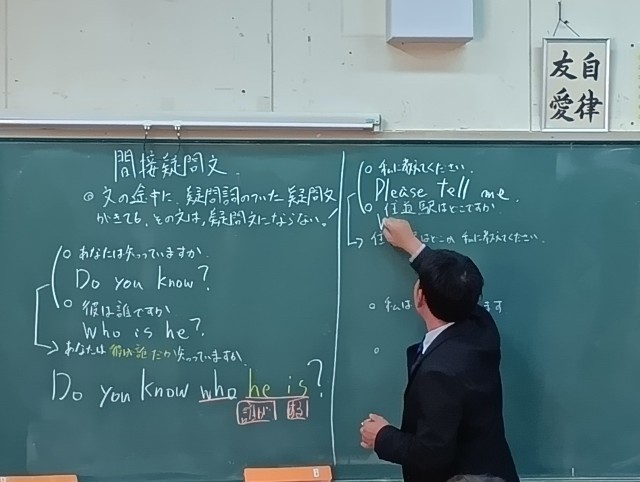 自律
友愛
間接疑問文
◎ 文の途中に、疑問詞のついた疑問文
がきても、その文は、疑問文にならない。
○ あなたは知っていますか
Do you know?
○ 彼は誰ですか
Who is he?
→ あなたは彼が誰だか知っていますか
Do you know who he is?
○ 私に教えてください.
Please tell me.
○ 住道駅はどこですか
W
はどこか 私に教えてください.
○ 私は
ます
○